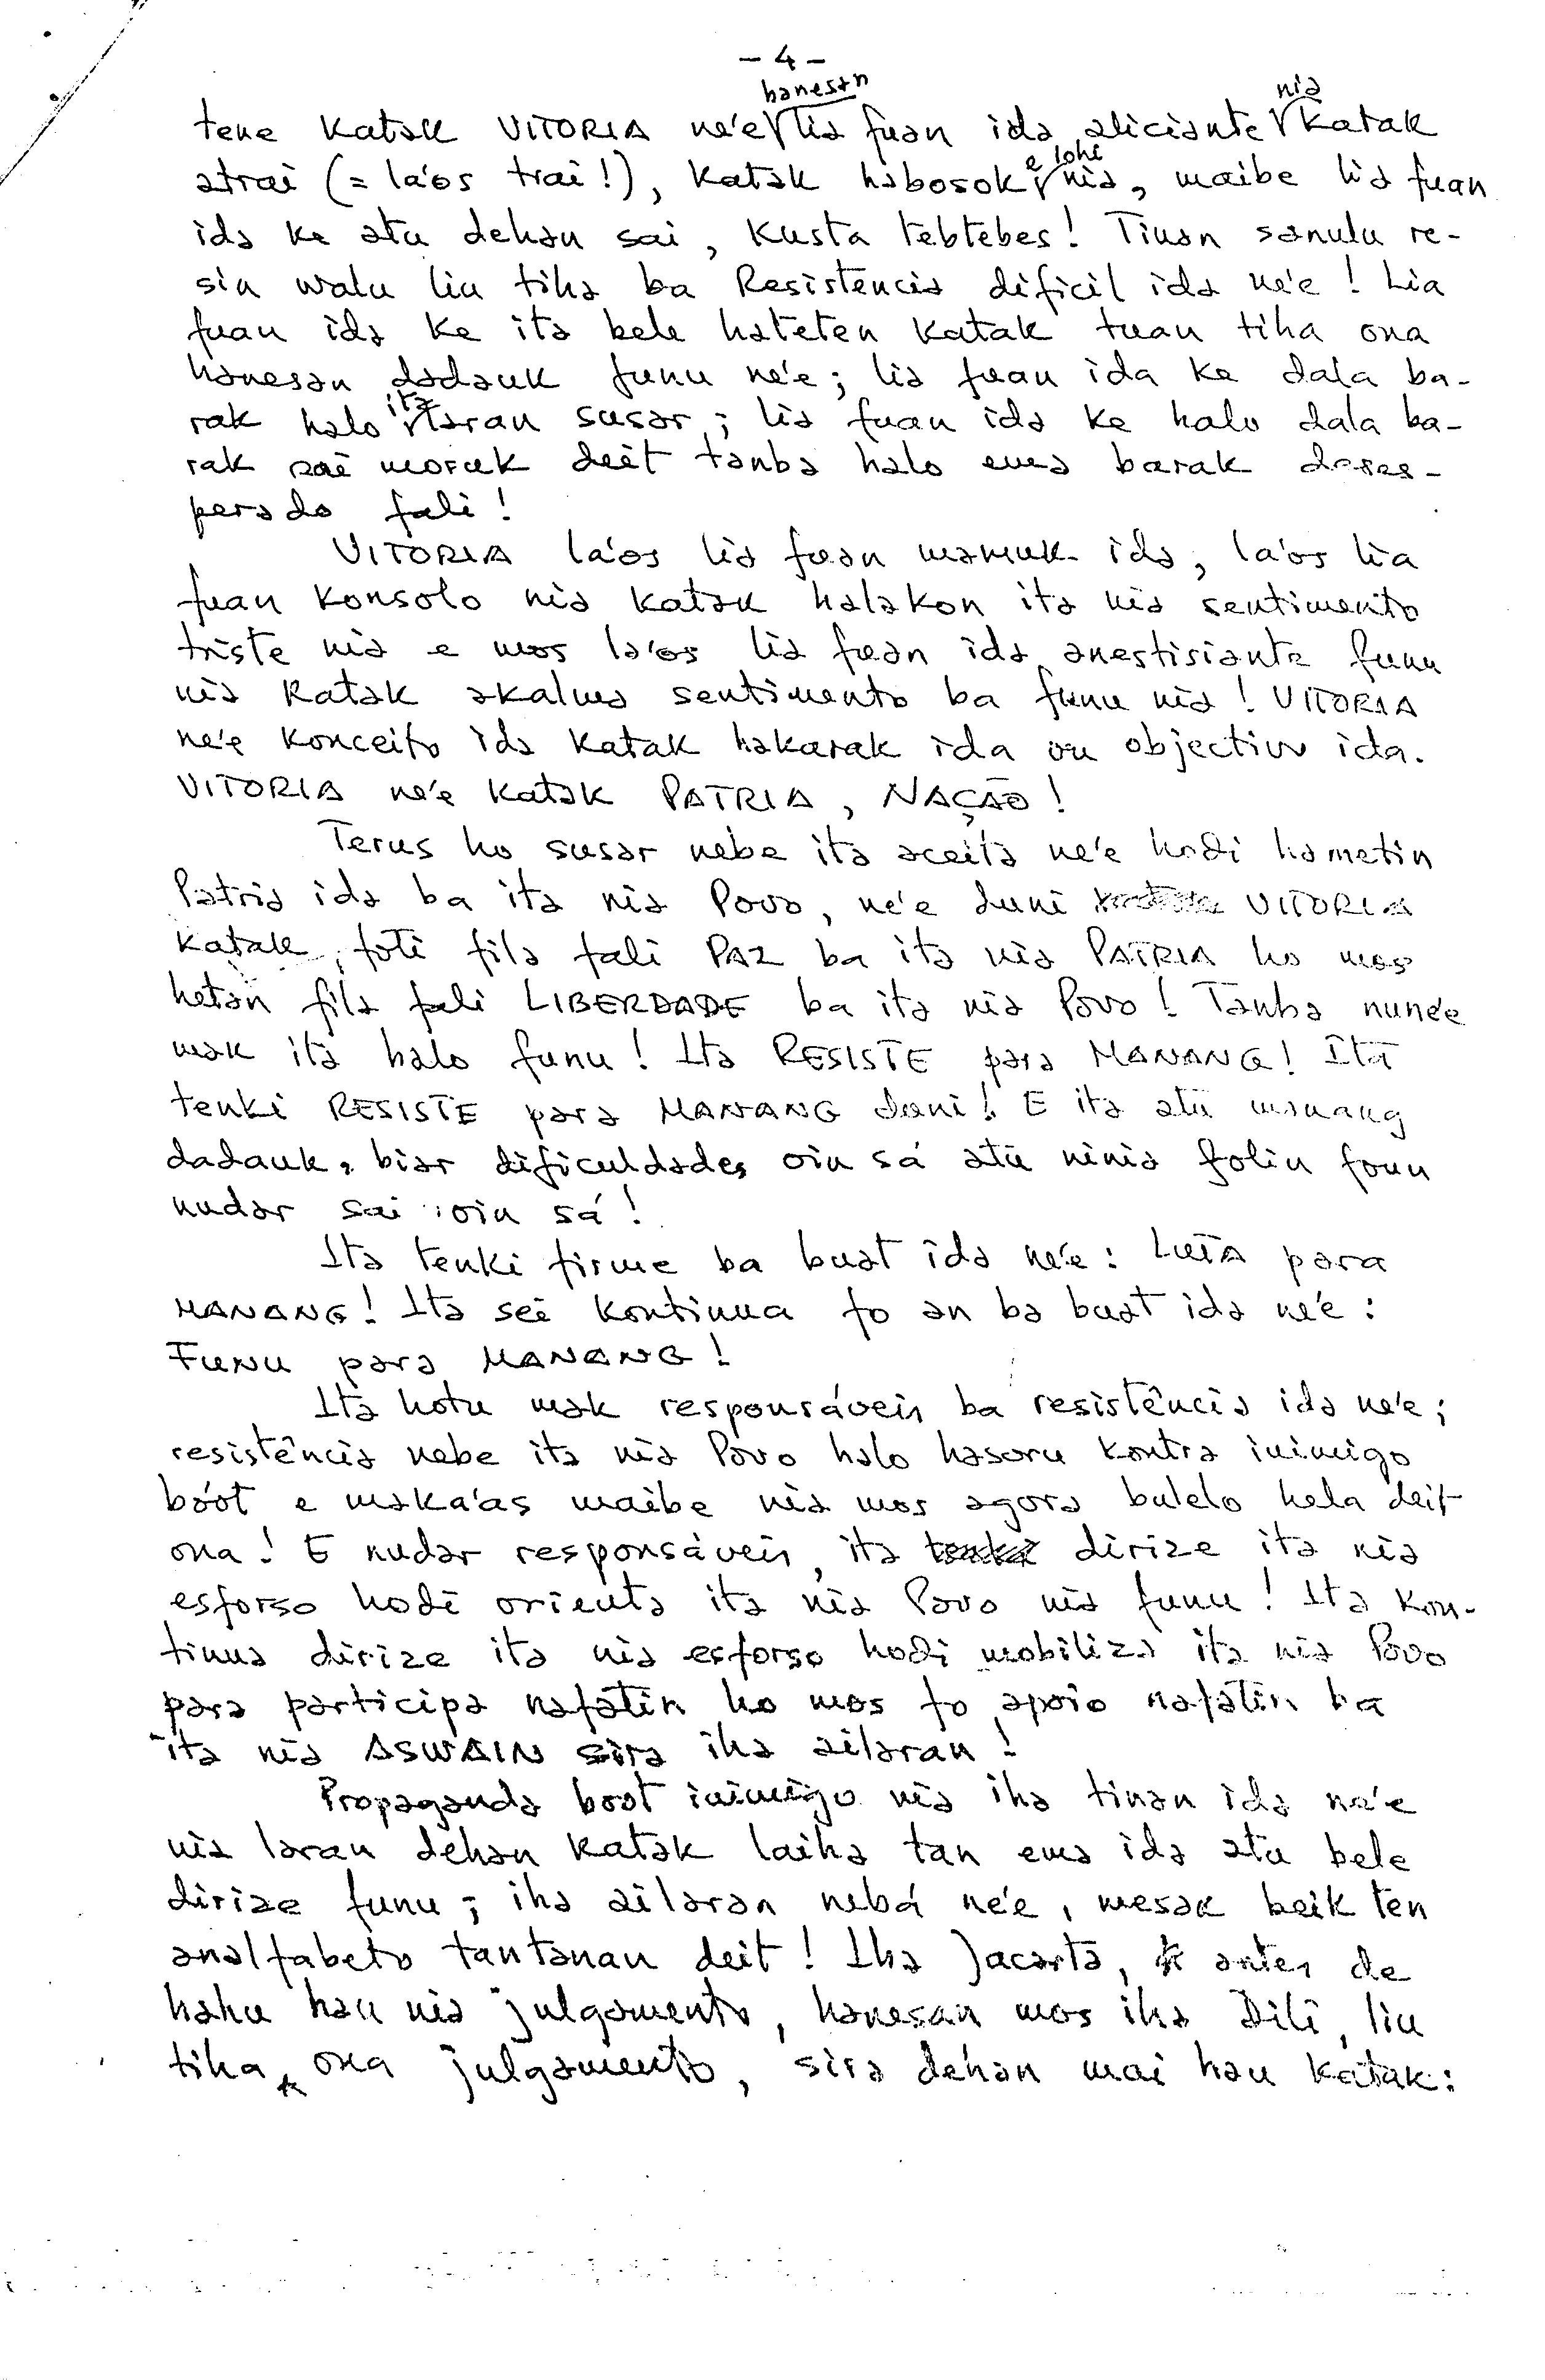 - 4 -
tene katak VITORIA ne'e hanesan lia fuan ida aliciante nia katak
atrai (= la'os trai!), katak habosok e lohi nia, maibe lia fuan
ida ke atu dehan sai, kusta tebtebes! Tinan sanulu re-
sin walu liu tiha ba Resistencia dificil ida ne'e! Lia
fuan ida ke ita bele hateten katak tuan tiha ona
hanesan dadauk funu ne'e; lia fuan ida ke dala ba-
rak halo ita laran susar; lia fuan ida ke halo dala ba-
rak sai moruk deit tanba halo ema barak deses-
perado fali!
VITORIA la'os lia fuan mamuk ida, la'os lia
fuan konsolo nia katak halakon ita nia sentimento
triste nia e mos la'os lia fuan ida anestisiante funu
nia katak akalma sentimento ba funu nia! VITORIA
ne'e konceito ida katak hakarak ida ou objectivo ida.
VITORIA ne'e katak PATRIA, NAÇÃO!
Terus ho susar nebe ita aceita ne'e hodi hametin
Patria ida ba ita nia Povo, ne'e duni VITORIA
katak, foti fila fali PAZ ba ita nia PATRIA ho mos
hetan fila fali LIBERDADE ba ita nia Povo! Tanba nune'e
mak ita halo funu! Ita RESISTE para MANANG! Ita
tenki RESISTE para MANANG duni! E ita atu manang
dadauk, biar dificuldades oin sá atu ninia folin foun
nudar sai oin sá!
Ita tenki firme ba buat ida ne'e: LUTA para
MANANG! Ita sei kontinua fo an ba buat ida ne'e:
FUNU para MANANG!
Ita hotu mak responsáveis ba resistência ida ne'e;
resistência nebe ita nia Povo halo hasoru kontra inimigo
bóot e maka'as maibe nia mos agora bulelo hela deit
ona! E nudar responsáveis, ita dirize ita nia
esforso hodi orienta ita nia Povo nia funu! Ita kon-
tinua dirize ita nia esforso hodi mobiliza ita nia Povo
para participa nafatin ho mos fo apoio nafatin ba
ita nia ASWAIN sira iha ailaran!
Propaganda boot inimigo nia iha tinan ida ne'e
nia laran dehan katak laiha tan ema ida atu bele
dirize funu; iha ailaran nebá ne'e, mesak beik ten
analfabeto tantanan deit! Iha Jacarta, antes de
hahu hau nia julgamento, hanesan mos iha Dili, liu
tiha ona julgamento, sira dehan mai hau katak: